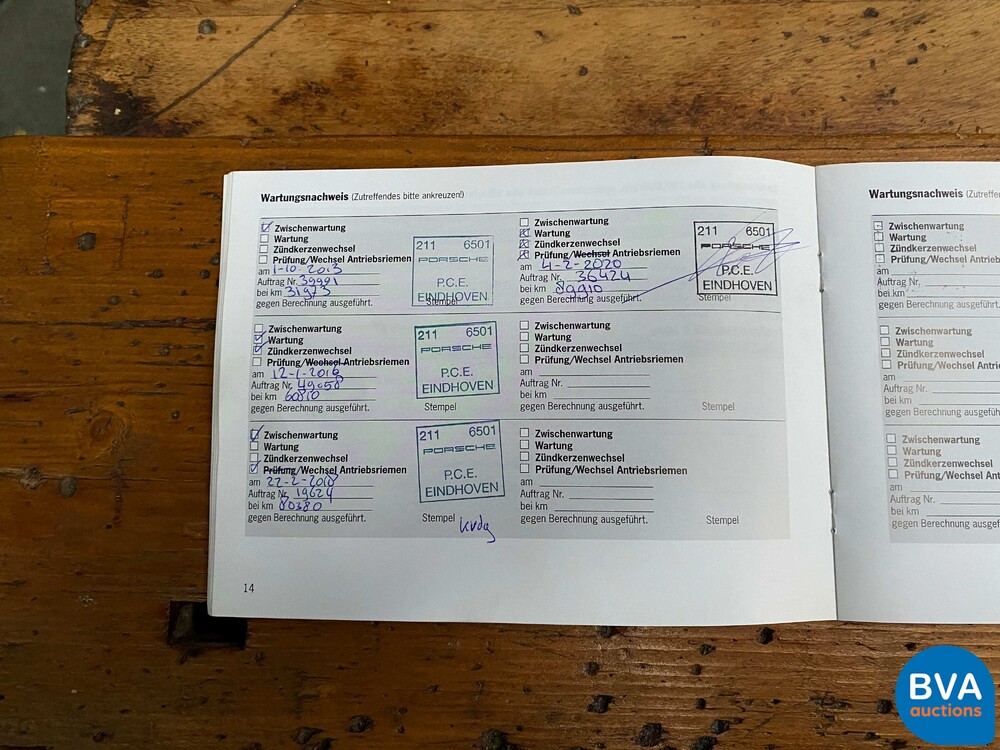 Wartungsnachweis (Zutreffendes bitte ankreuzen!)
Zwischenwartung
Wartung
Zündkerzenwechsel
Prüfung/Wechsel Antriebsriemen
am 1-10-2013
Auftrag Nr. 39991
bei km 31973
gegen Berechnung ausgeführt.
211 6501
PORSCHE
P.C.E.
EINDHOVEN
Stempel
Zwischenwartung
Wartung
Zündkerzenwechsel
Prüfung/Wechsel Antriebsriemen
am 12-1-2016
Auftrag Nr. 49058
bei km 60810
gegen Berechnung ausgeführt.
211 6501
PORSCHE
P.C.E.
EINDHOVEN
Stempel
Zwischenwartung
Wartung
Zündkerzenwechsel
Prüfung/Wechsel Antriebsriemen
am 22-2-2018
Auftrag Nr. 19624
bei km 80380
gegen Berechnung ausgeführt.
211 6501
PORSCHE
P.C.E.
EINDHOVEN
Stempel
14
Zwischenwartung
Wartung
Zündkerzenwechsel
Prüfung/Wechsel Antriebsriemen
am 4-2-2020
Auftrag Nr. 36424
bei km 89910
gegen Berechnung ausgeführt.
211 6501
PORSCHE
P.C.E.
EINDHOVEN
Stempel
Zwischenwartung
Wartung
Zündkerzenwechsel
Prüfung/Wechsel Antriebsriemen
am
Auftrag Nr.
bei km
gegen Berechnung ausgeführt.
Stempel
Zwischenwartung
Wartung
Zündkerzenwechsel
Prüfung/Wechsel Antriebsriemen
am
Auftrag Nr.
bei km
gegen Berechnung ausgeführt.
Stempel
Wartungsnachweis (Zutreffende
Zwischenwartung
Wartung
Zündkerzenwechsel
Prüfung/Wechsel Antriebs
am
Auftrag Nr.
bei km
gegen Berechnung ausgefü
Zwischenwartung
Wartung
Zündkerzenwechsel
Prüfung/Wechsel Antrie
am
Auftrag Nr.
bei km
gegen Berechnung ausgef
Zwischenwartung
Wartung
Zündkerzenwechsel
Prüfung/Wechsel Antri
am
Auftrag Nr.
bei km
gegen Berechnung ausge
BVA
auctions